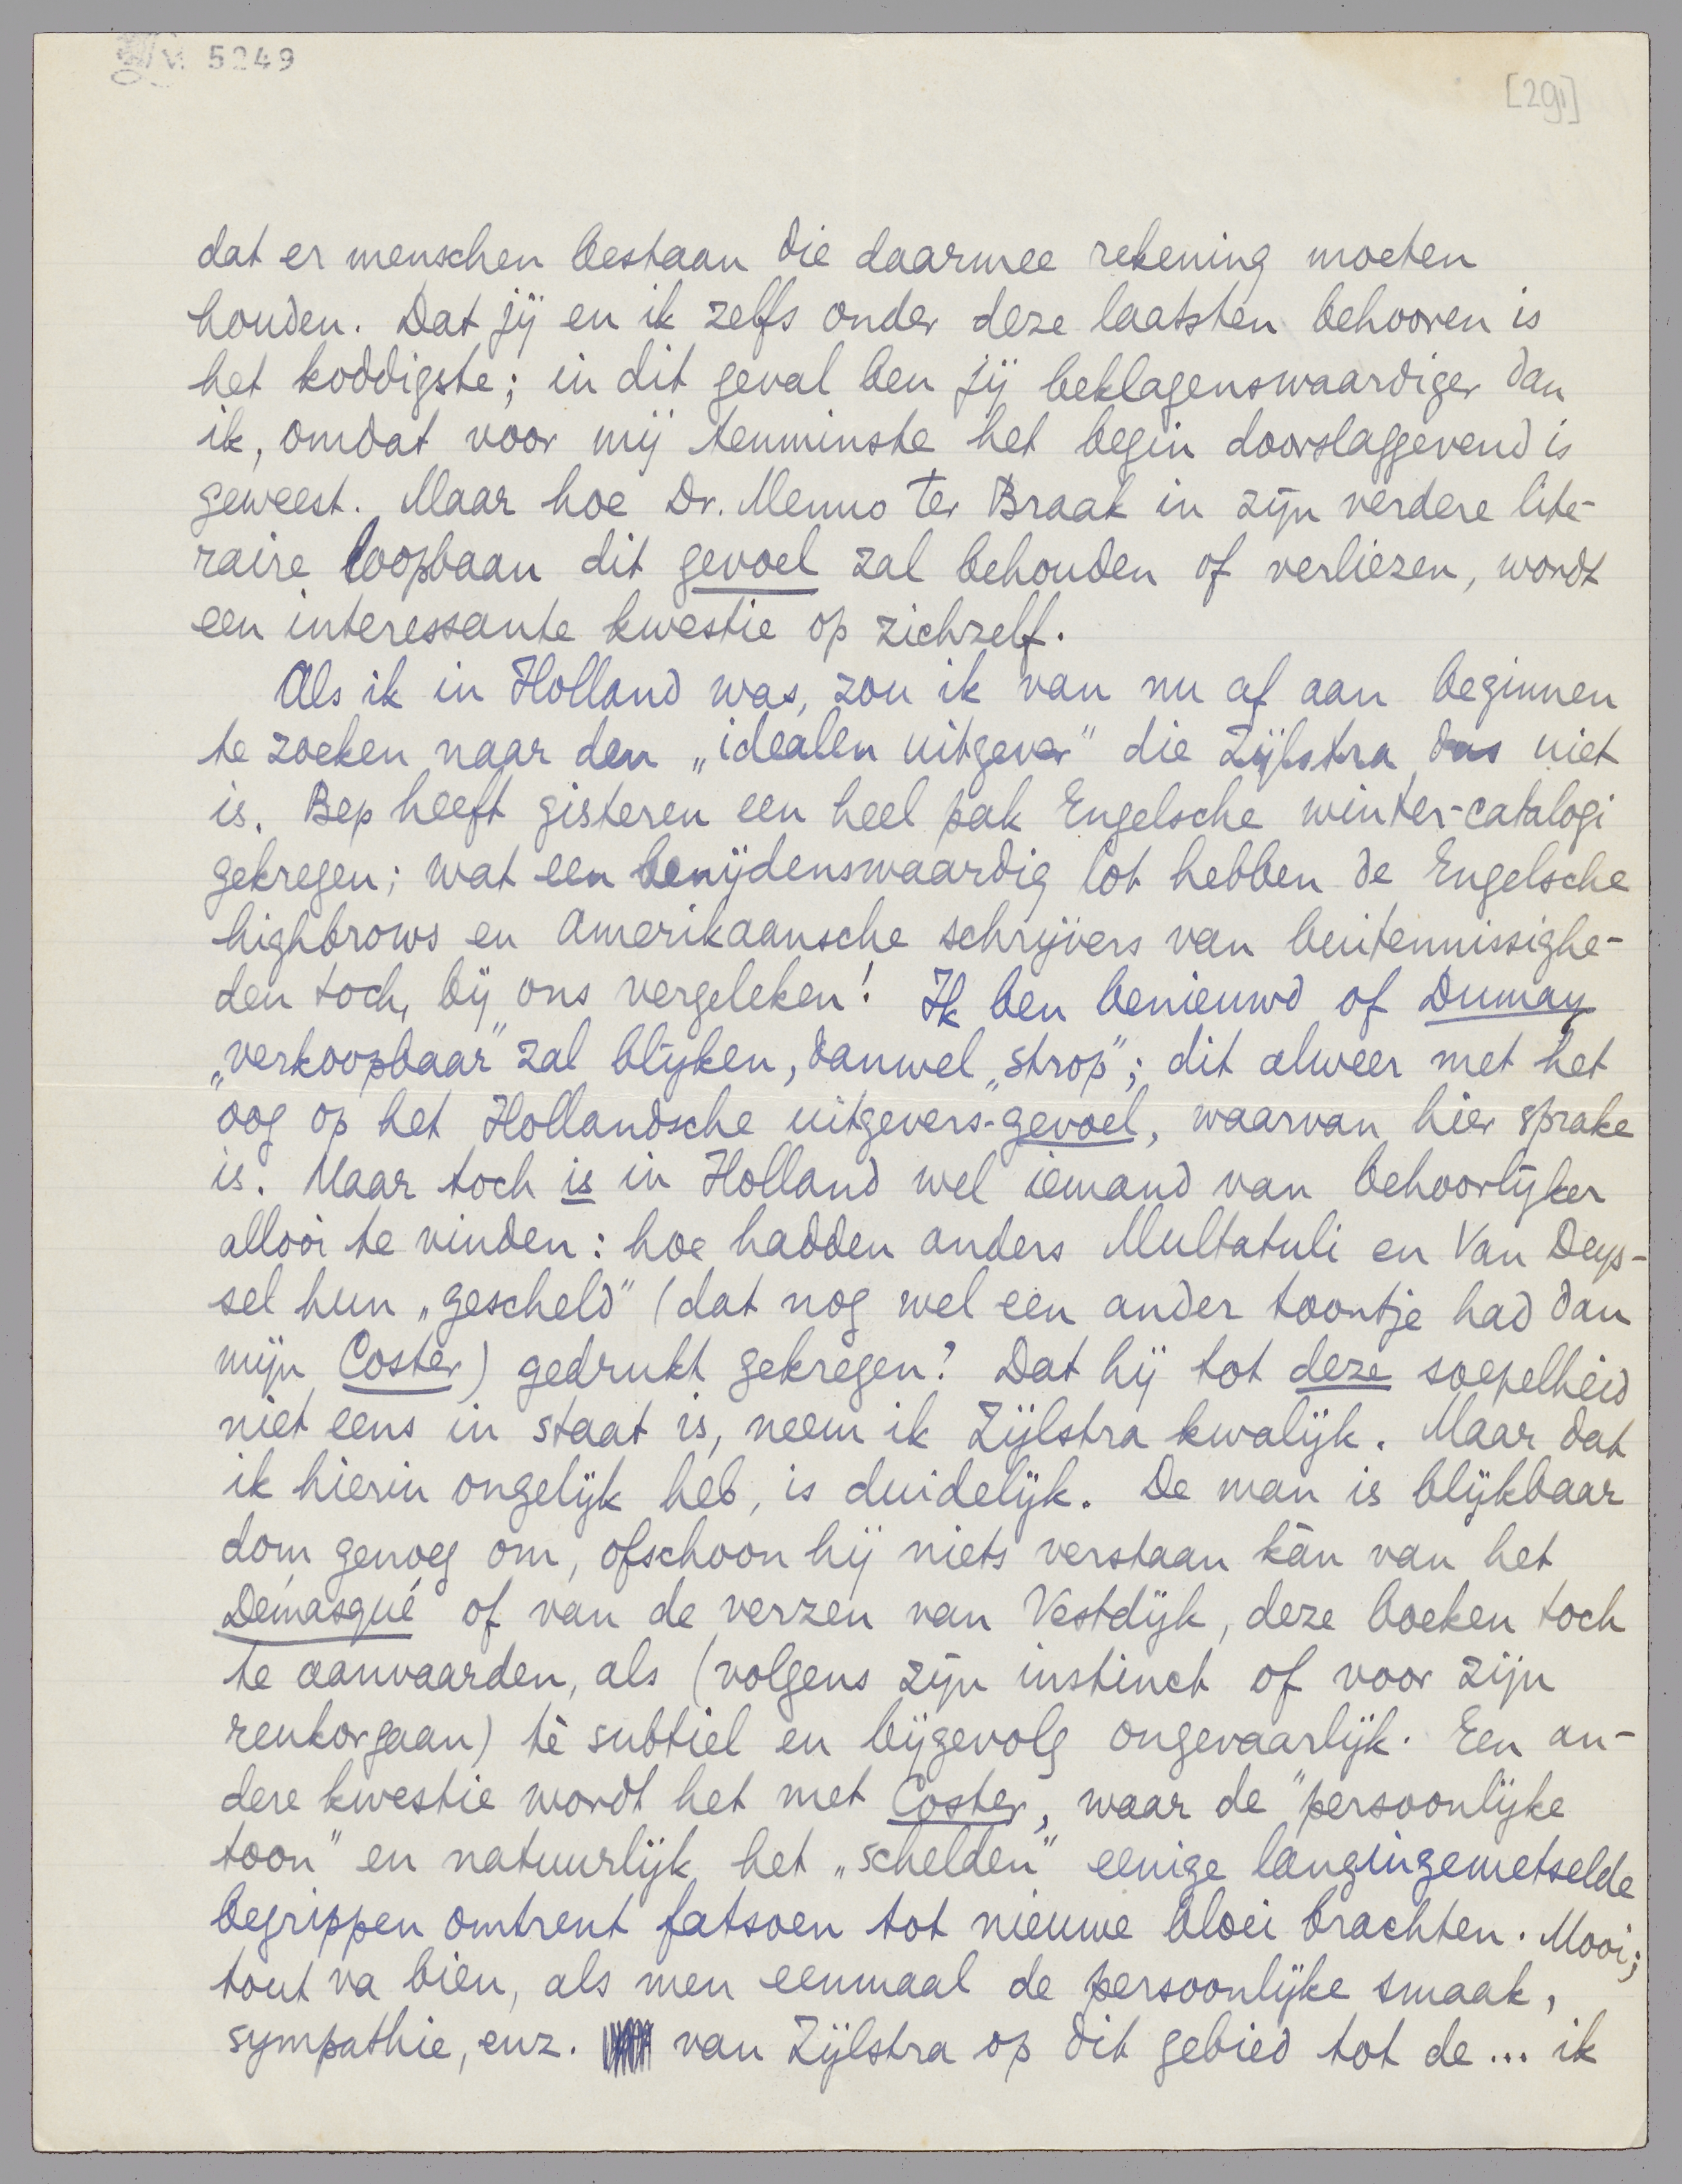 5249
[291]
dat er menschen bestaan die daarmee rekening moeten
houden. Dat jij en ik zelfs onder deze laatsten behooren is
het koddigste; in dit geval ben jij beklagenswaardiger dan
ik, omdat voor mij tenminste het begin doorslaggevend is
geweest. Maar hoe Dr. Menno ter Braak in zijn verdere lite-
raire loopbaan dit gevoel zal behouden of verliezen, wordt
een interessante kwestie op zichzelf.
Als ik in Holland was, zou ik van nu af aan beginnen
te zoeken naar den „idealen uitgever" die Zijlstra dus niet
is. Bep heeft gisteren een heel pak Engelsche winter-catalogi
gekregen; wat een benijdenswaardig lot hebben de Engelsche
highbrows en Amerikaansche schrijvers van buitennissighe-
den toch, bij ons vergeleken! Ik ben benieuwd of Dumay
„verkoopbaar" zal blijken, danwel „strop"; dit alweer met het
oog op het Hollandsche uitgevers-gevoel, waarvan hier sprake
is. Maar toch is in Holland wel iemand van behoorlijker
allooi te vinden: hoe hadden anders Multatuli en Van Deys-
sel hun „gescheld" (dat nog wel een ander toontje had dan
mijn Coster) gedrukt gekregen? Dat hij tot deze soepelheid
niet eens in staat is, neem ik Zijlstra kwalijk. Maar dat
ik hierin ongelijk heb, is duidelijk. De man is blijkbaar
dom genoeg om, ofschoon hij niets verstaan kàn van het
Démasqué of van de verzen van Vestdijk, deze boeken toch
te aanvaarden, als (volgens zijn instinct of voor zijn
reukorgaan) tè subtiel en bijgevolg ongevaarlijk. Een an-
dere kwestie wordt het met Coster, waar de "persoonlijke
toon" en natuurlijk het „schelden" eenige langingemetselde
begrippen omtrent fatsoen tot nieuwe bloei brachten. Mooi;
tout va bien, als men eenmaal de persoonlijke smaak,
sympathie, enz. van Zijlstra op dit gebied tot de... ik